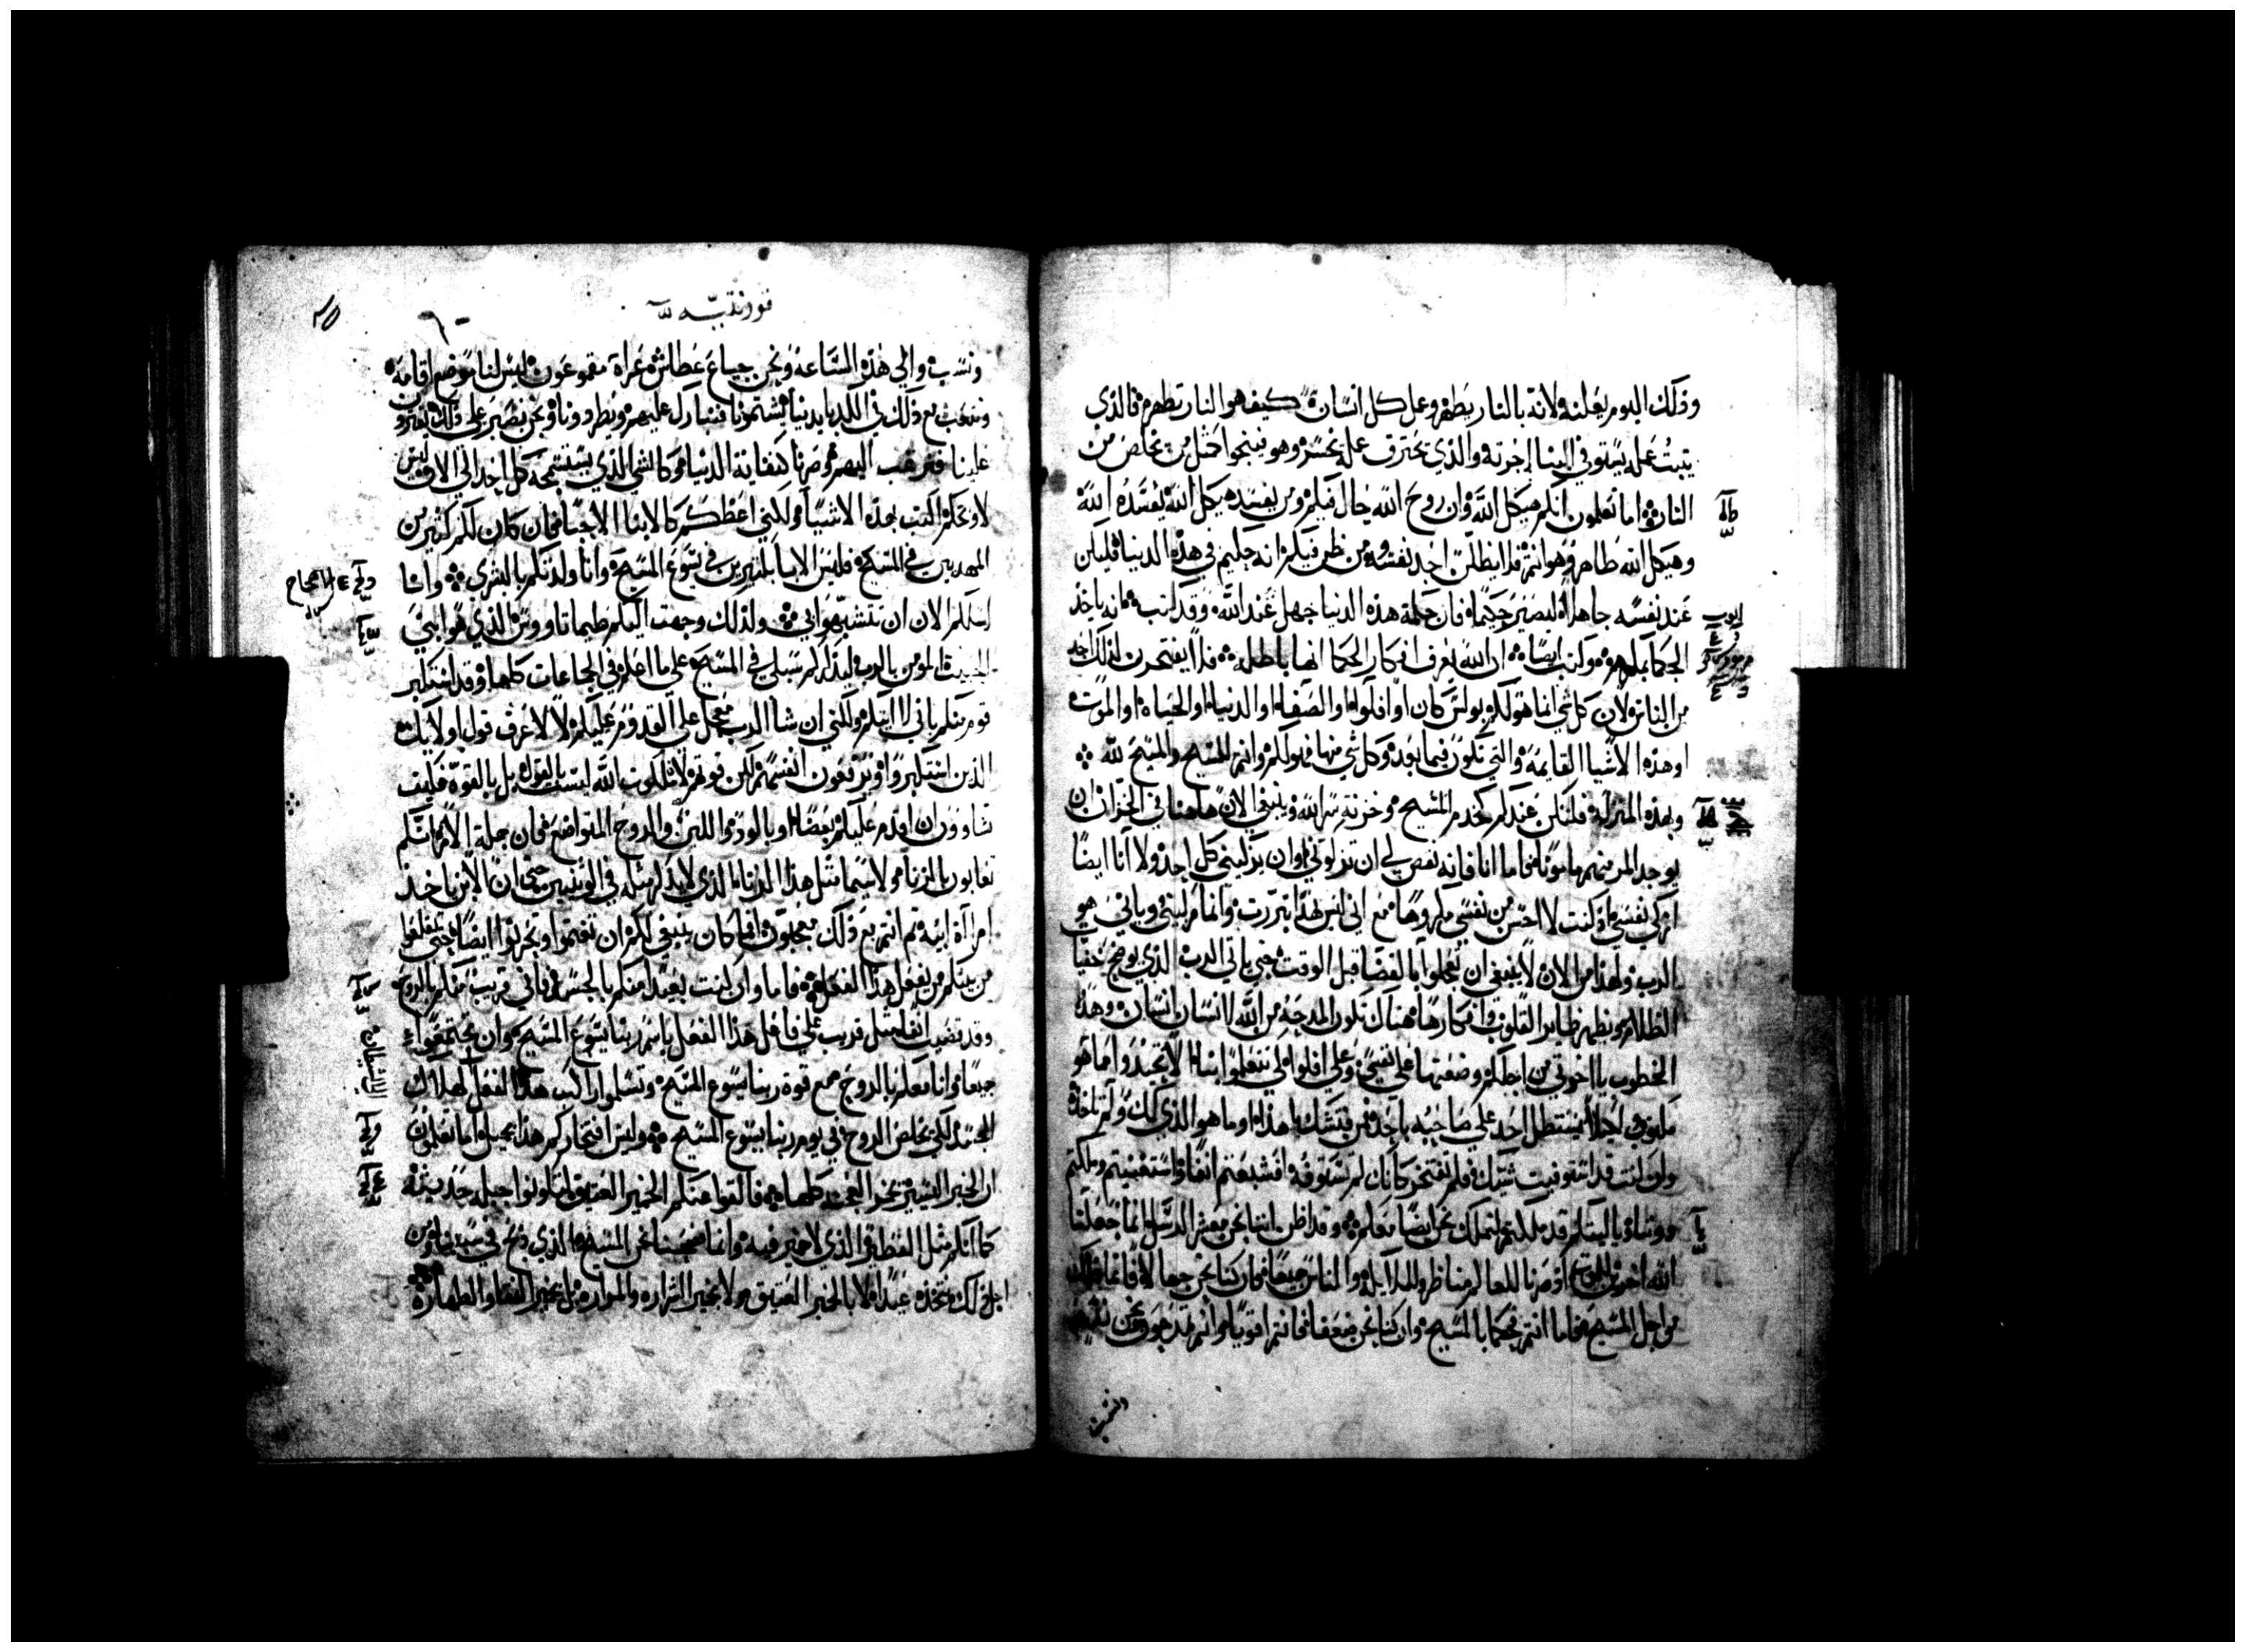 وذلك اليوم يعلنه ولانه بالنار يظهر وعمل كل انسان كيف هو النار تظهره فالذي
يثبت عمله يستوفي البنا اجرته والذي يحترق عمله يخسر وهو فينجوا كمثل من تخلص من
النار اما تعلمون انكم هيكل الله وان روح الله حال فيكم ومن يفسد هيكل الله يفسده الله
وهيكل الله طاهر وهو انتم فلا يظلن احد نفسه ومن ظن فيكم انه حكيم في هذه الدنيا فليكن
عند نفسه جاهلا ليصير حكيما فان حكمة هذه الدنيا جهل عند الله وقد كتب انه ياخذ
الحكما بمكرهم وكتب ايضا ان الله يعرف افكار الحكما انها باطله فلا يفتخرن لذلك احد
من الناس ولان كل شي انما هو لكم بولس كان او افلوا او الصفا او الدنيا او الحياة او الموت
او هذه الاشيا القايمه والتي تكون فيما بعد وكل شي منها فهو لكم وانتم للمسيح والمسيح لله
وبهذه المنزلة فلنكن عندكم كخدم المسيح وخزنة سر الله وينبغي الان هاهنا في الخزان ان
يوجد المر منهم مامونا فاما انا فانه نقص لي ان تزكوني او ان يزكيني كل احد ولا انا ايضا
ازكي نفسي وكنت لا احس من نفسي مكروها مع اني ليس بهذا تبررت وانما مزكيني وياني هو
الرب ولهذا من الان لا ينبغي ان تعجلوا بالقضا قبل الوقت حتي ياتي الرب الذي يوضح خفيات
الظلام ويظهر ضماير القلوب وافكارها هناك تكون المدحة من الله لانسان انسان وهذه
الخطوب يا اخوتي من اجلكم وضعتها علي نفسي وعلي افلوا لكي تتعلموا بنا الا تتجيدوا اما هو
مكتوب لكيلا يستطل احد علي صاحبه باحد من فتشك هذا او ما هو الذي لك ولم تاخذه
ولان كنت قد استوفيت شيك فلم تفتخر كانك لم تستوفه وقد شبعتم انفا واستغنيتم وملكتم
دوننا ويا ليتكم قد ملكتم لنملك نحن ايضا معكم وقد اظن اننا نحن معشر الرسل انما جعلنا
الله اخرين للموت اذ صرنا للعالم مناظر وللملايكه والناس جميعا فان كنا نحن جهالا فانما ذلك
من اجل المسيح فاما انتم فحكما بالمسيح وان كنا نحن ضعفا فانتم اقويا وانتم تمدحون ونحن نشتم
قورنتيه
ونسب والي هذه الساعه ونحن جياع عطاش عراة مقموعون ليس لنا موضع اقامه
ونتعب مع ذلك في الكد بايدينا يشتمونا فنبارك عليهم ويطردونا ونحن نصبر علي ذلك يفترون
علينا فنرغب اليهم وصرنا كنفاية الدنيا وكالشي الذي يستسمجه كل احد الي الان ليس
لاوبخكم اكتب بهذه الاشيا ولكني اعظكم كالابنا الاحبا فان كان لكم كثير من
المهديين في المسيح فليس الابا بكثيرين في يسوع المسيح وانا ولدتكم بالبشري وانا
اسلكم الان ان تتشبهوا بي ولذلك وجهت اليكم طيماتاوس الذي هو ابني
الحبيب المومن بالرب ليذكركم سبلي في المسيح علي ما اعلم في الجماعات كلها وقد استكبر
قوم منكم باني لا اتيكم ولكني ان شا الرب معجل علي القدوم عليكم لا لاعرف قول اولايك
الذين استكبروا ويرفعون انفسهم لكن قوتهم لان ملكوت الله ليست بالقول بل بالقوة فكيف
تشاوون ان اقدم عليكم بعصا او بالود واللين والروح المتواضع فان جملة الامر انكم
تعابون بالزنا ولاسيما مثل هذا الزنا الذي لا يذكر مثله في الوثنيين حتي ان الابن ياخذ
امراة ابيه ثم انتم مع ذلك مبجلون افما كان ينبغي لكم ان تغتموا وتحزنوا ايضا حتي تقلعوا
من بينكم من يفعل هذا الفعل فاما وان كنت بعيدا منكم بالجسم فاني قريب منكم بالروح
وقد قضيت انفا مثل قريب علي فاعل هذا الفعل باسم ربنا يسوع المسيح وان تجتمعوا
جميعا وانا معكم بالروح مع قوة ربنا يسوع المسيح وتسلموا راكب هذا الفعل لهلاك
الجسد لكي تخلص الروح في يوم ربنا يسوع المسيح وليس افتخاركم هذا بجميل اما تعلمون
ان الخمير اليسير يخمر العجنه كلها فالقوا عنكم الخمير العتيق لتكونوا جبله جديدة
كما انكم مثل الفطير الذي لا خمير فيه وانما فصحنا نحن المسيح الذي ذبح في سببنا ومن
اجل ذلك نتخذه عيدا لا بالخمير العتيق ولا بخمير الشراره والمراره بل بخمير النقا والطهارة